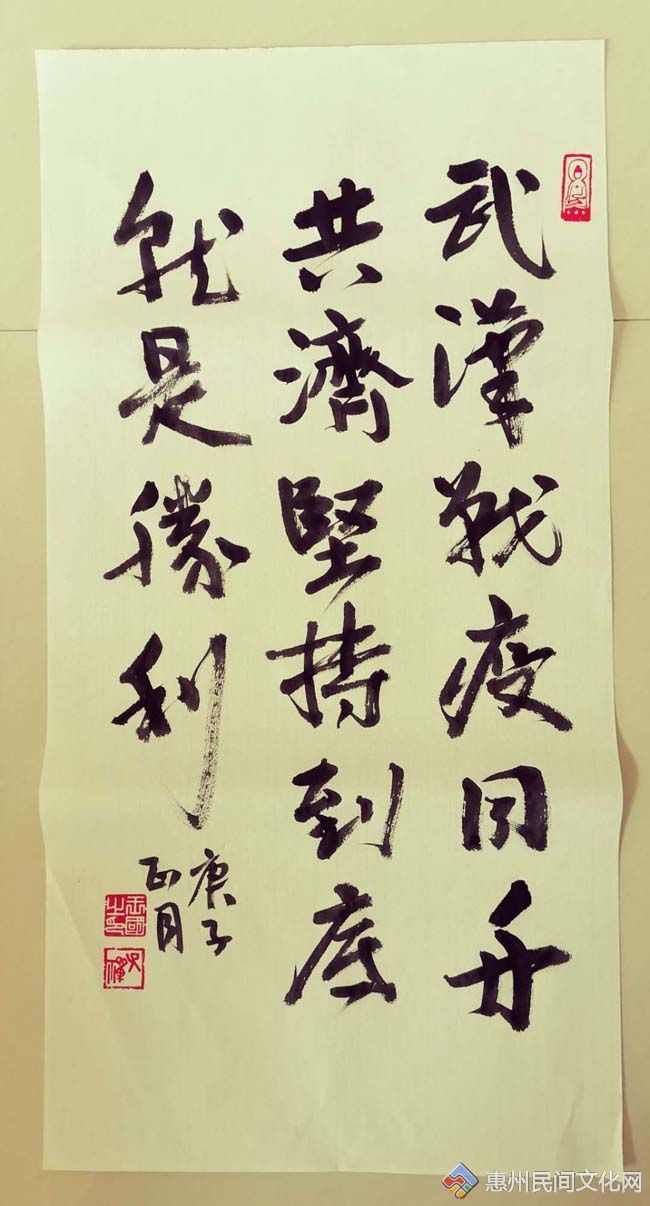 武漢戰疫同舟
共濟堅持到底
就是勝利
庚子
正月
惠州民间文化网